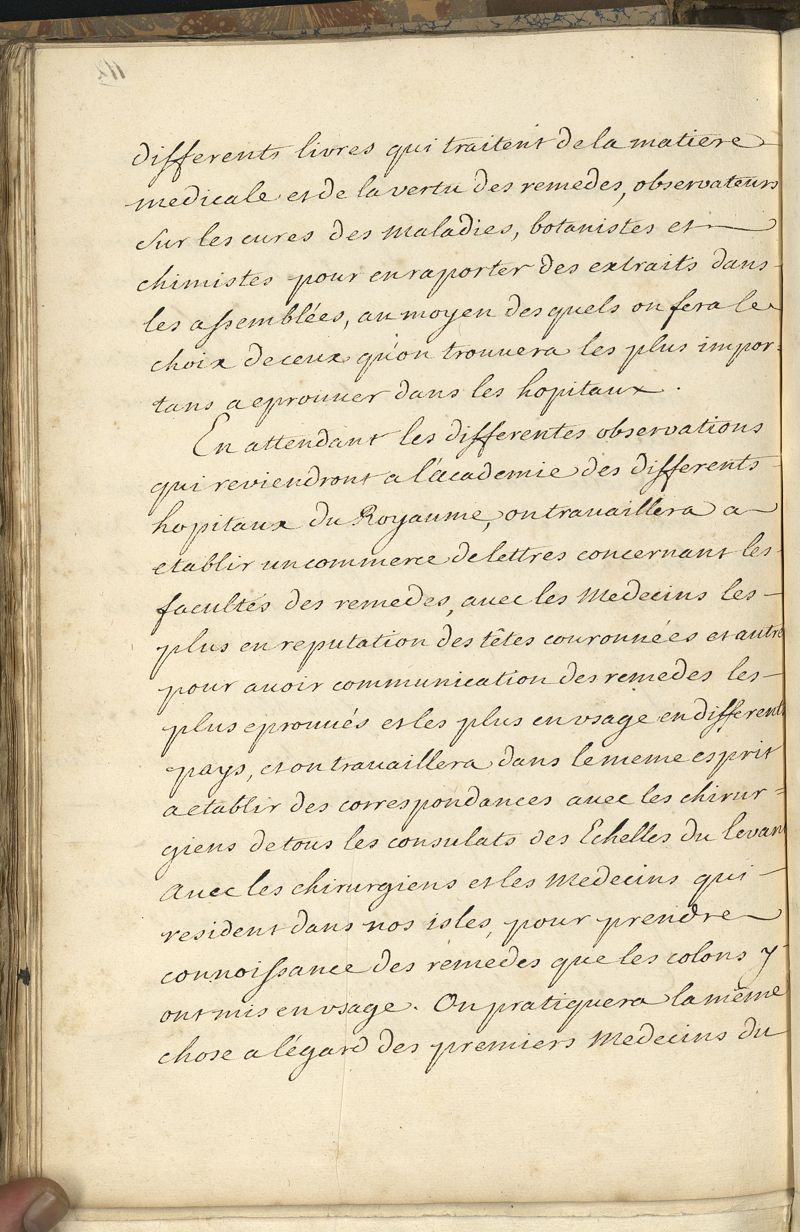 differents livres qui traitent de la matiere
medicale et de la vertu des remedes, observateurs
sur les cures des maladies, botanistes et
chimistes pour en raporter des extraits dans
les assemblées, au moyen des quels on fera le
choix de ceux qu'on trouvera les plus impor-
tans a eprouver dans les hopitaux.
En attendant les differentes observations
qui reviendront a l'academie des differents
hopitaux du Royaume, on travaillera a
etablir un commerce de lettres concernant les
facultés des remedes, avec les Medecins les
plus en reputation des têtes couronnées et autre
pour avoir communication des remedes les
plus eprouvés et les plus en usage en differents
pays, et on travaillera dans le meme esprit
a etablir des correspondances avec les chirur-
giens de tous les consulats des Echelles du levant
avec les chirurgiens et les Medecins qui
resident dans nos isles, pour prendre
connoissance des remedes que les colons y
ont mis en usage. On pratiquera la même
chose a l'égard des premiers Medecins du